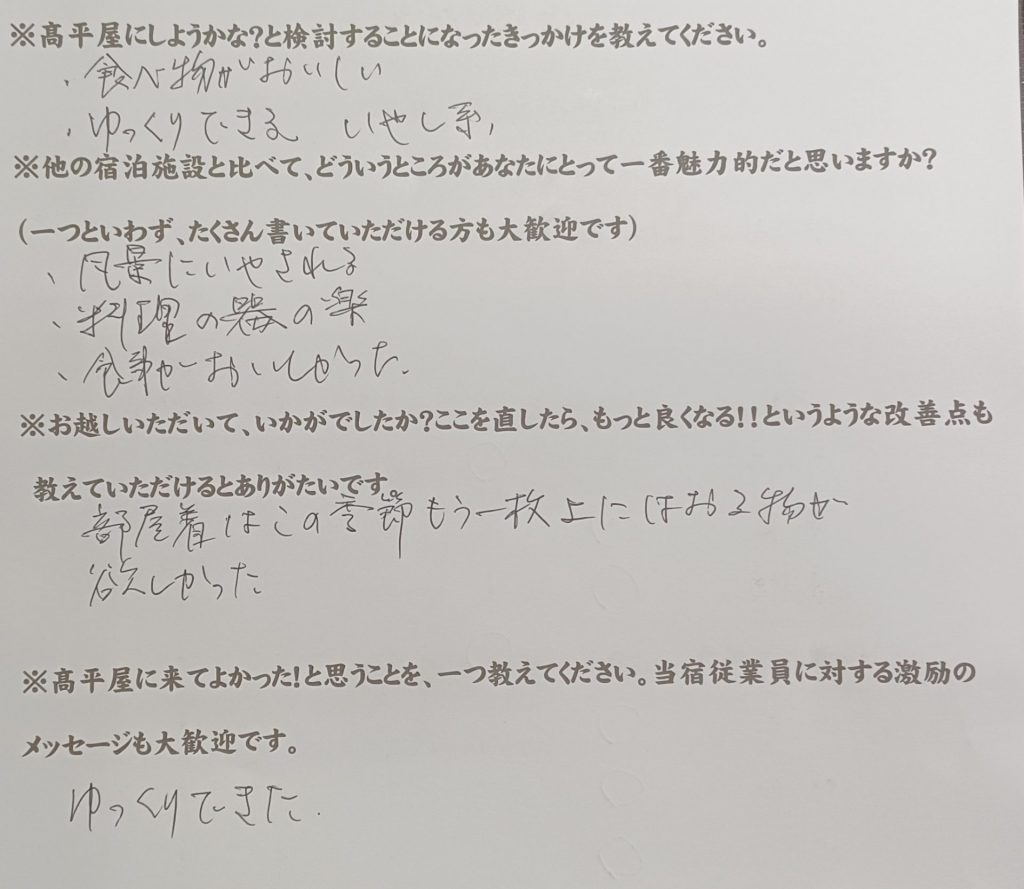 ※髙平屋にしようかな?と検討することになったきっかけを教えてください。
、食べ物がおいしい
、ゆっくりできる いやし系,
※他の宿泊施設と比べて、どういうところがあなたにとって一番魅力的だと思いますか?
(一つといわず、たくさん書いていただける方も大歓迎です)
、風景にいやされる
、料理の器の楽
、食事がおいしかった.
※お越しいただいて、いかがでしたか?ここを直したら、もっと良くなる!!というような改善点も
教えていただけるとありがたいです。
部屋着はこの季節もう一枚上にはおる物が
欲しかった
※髙平屋に来てよかった!と思うことを、一つ教えてください。当宿従業員に対する激励の
メッセージも大歓迎です。
ゆっくりできた.